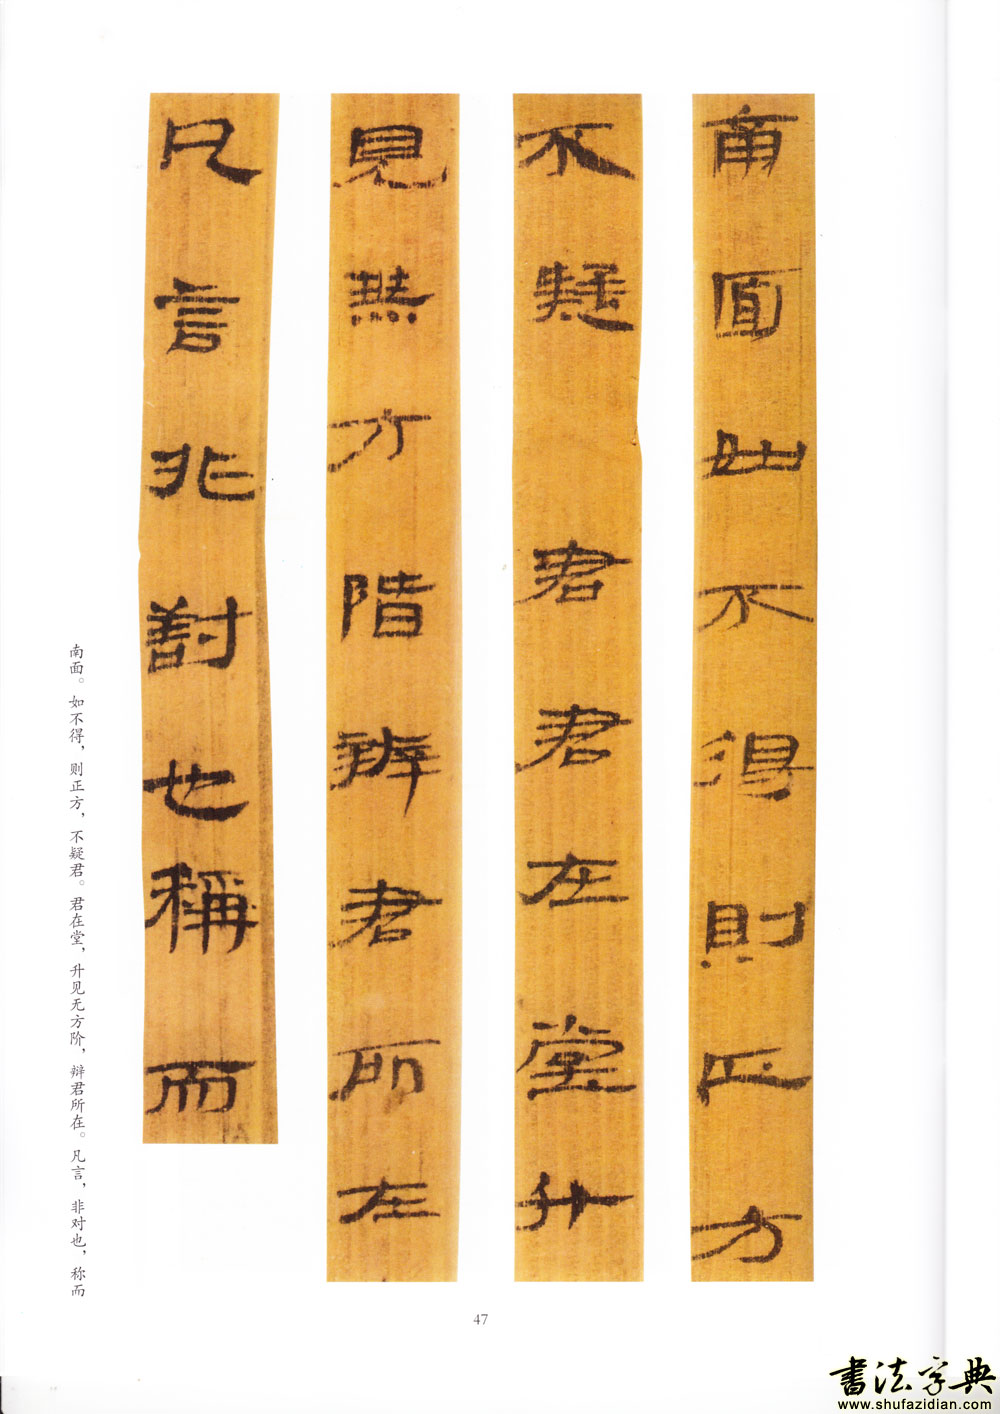 南面如不得則正方
不疑君君在堂升
見無方階辨君所在
凡言非對也稱而
南面。如不得，则正方，不疑君。君在堂，升见无方阶，辩君所在。凡言，非对也，称而
47
書法字典
www.shufazidian.com